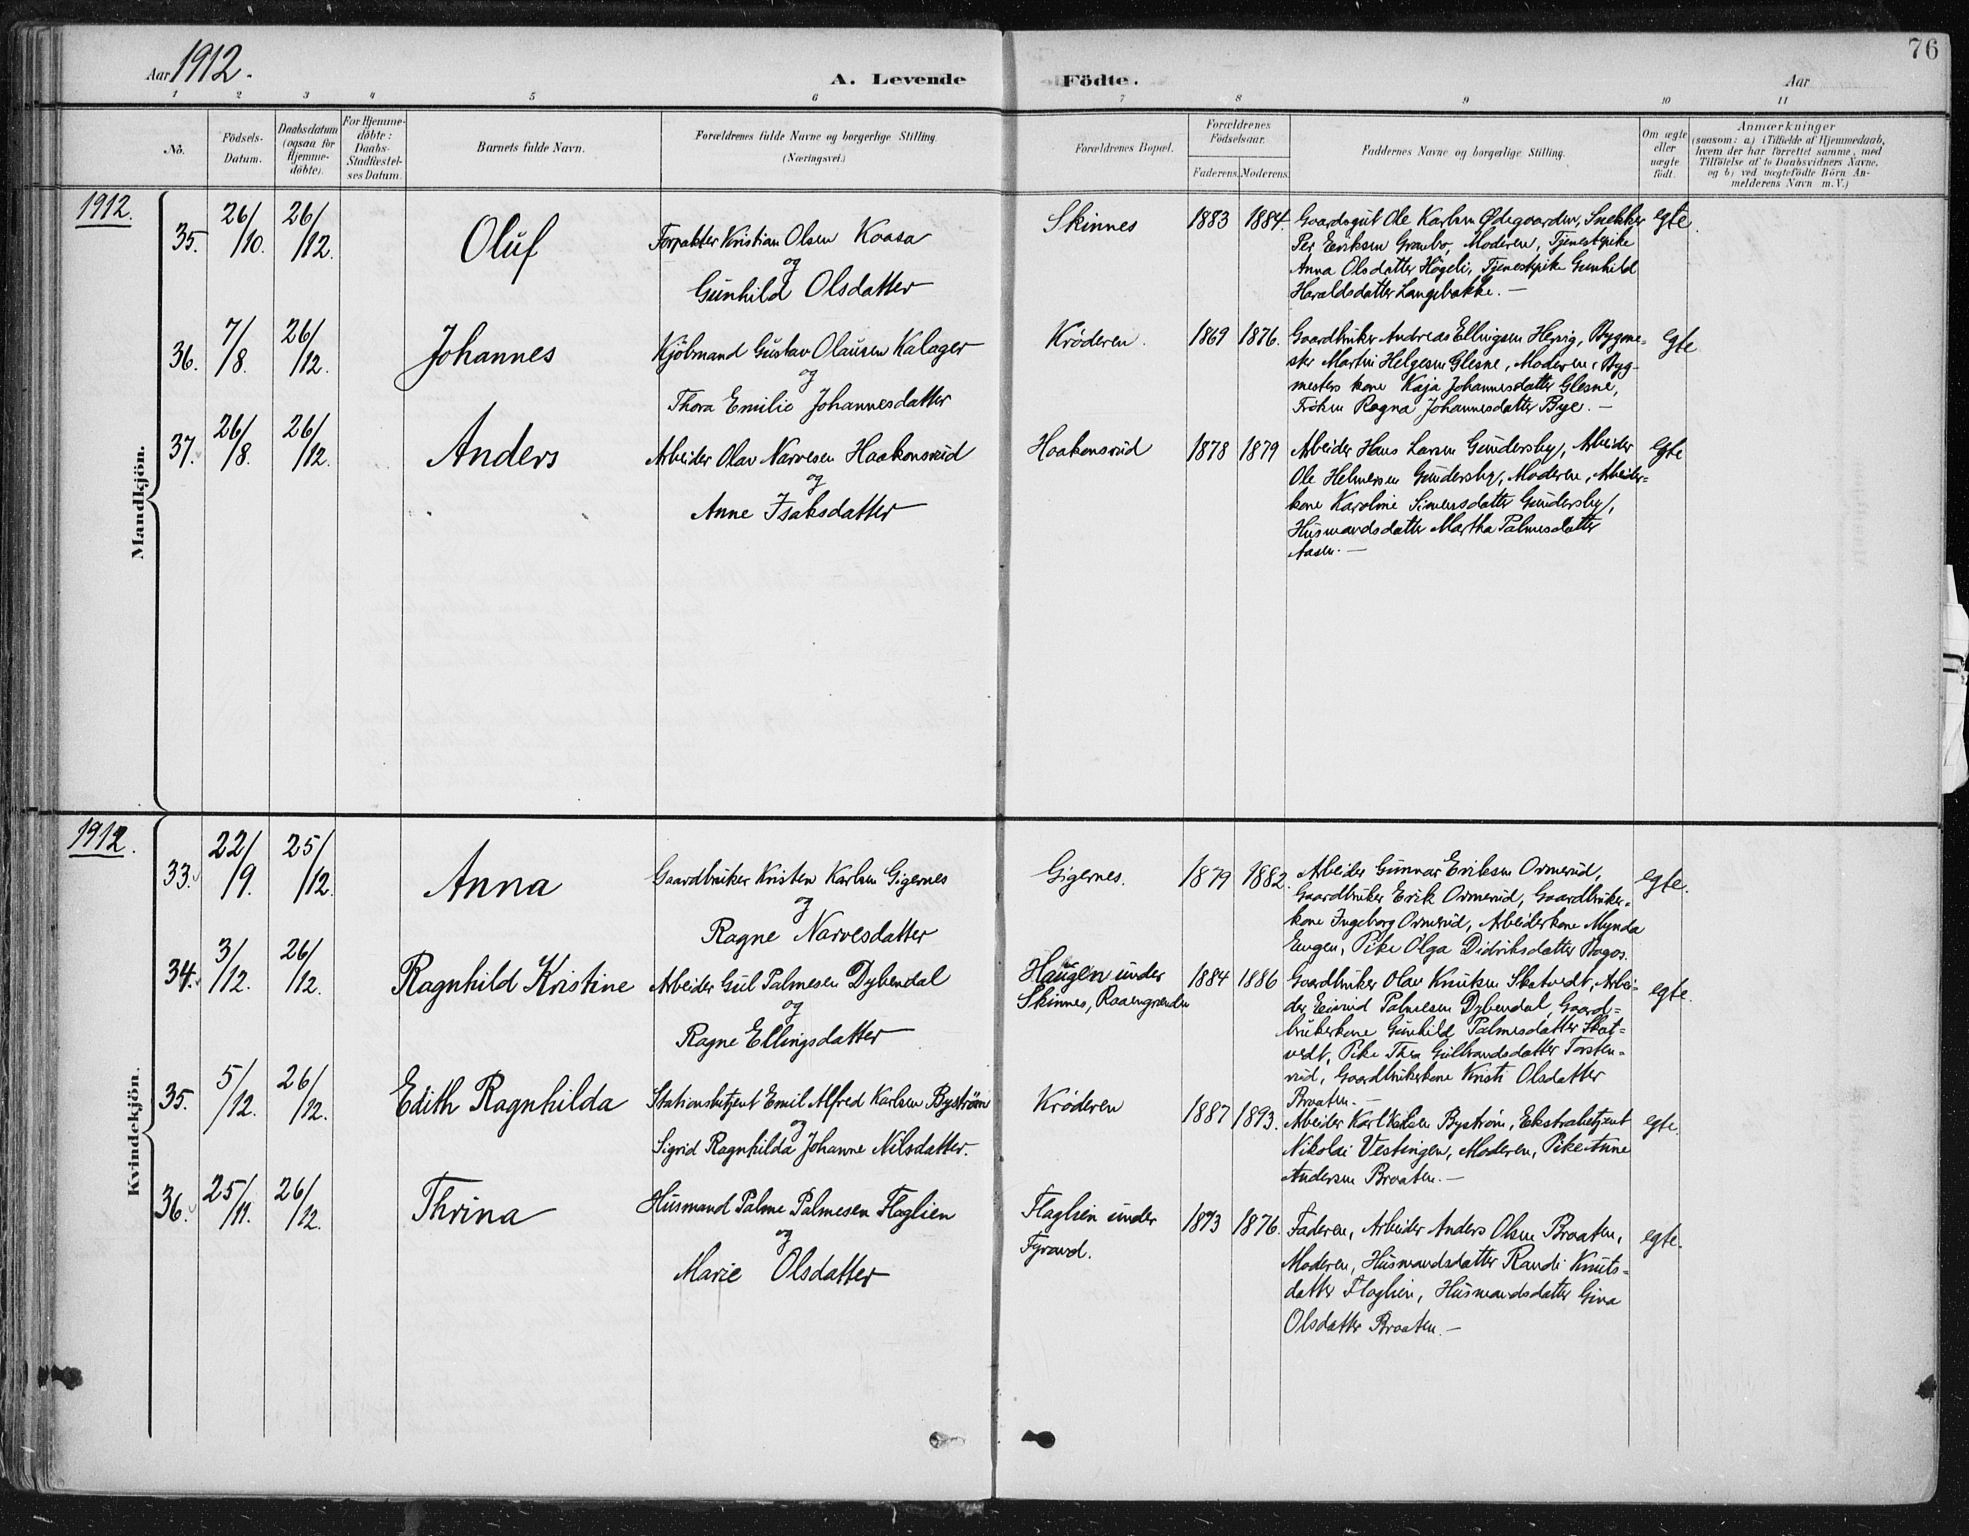 76
Aar 1912.
A. Levende Födte.
Aar
1 2 3 4 5 6 7 8 9 10 11
No.
Födsels-
Datum.
Daabsdatum
(ogsaa for
Hjemme-
döbte).
For Hjemme-
döbte:
Daabs-
Stadfæstel-
ses Datum.
Barnets fulde Navn.
Forældrenes fulde Navne og borgerlige Stilling
(Næringsvei.)
Forældrenes Bopæl.
Forældrenes
Födselsaar.
Faderens. Moderens.
Faddernes Navne og borgerlige Stilling.
Om ægte
eller
uægte
födt.
Anmærkninger
(saasom: a) i Tilfælde af Hjemmedaab,
hvem der har forrettet samme, med
Tilföielse af to Daabsvidners Navne,
og b) ved uægtefödte Börn An-
melderens Navn m. V.)
Mandkjön.
1912.
35. 26/10. 26/12. Oluf
Forpakter Kristian Olsen Kaasa
og
Gunhild Olsdatter
Skinnes 1883 1884.
Gaardsgut Ole Karlsen Ødegaarden, Snekker
Per Eriksen Grønbo, Moderen, Tjenestepike
Anna Olsdatter Høgeli, Tjenestepike Gunhild
Haraldsdatter Langebakke. —
egte.
36. 7/8. 26/12. Johannes
Kjøbmand Gustav Olausen Kalager
og
Thora Emilie Johannesdatter
Krøderen. 1869 1876.
Gaardbruker Andreas Ellingsen Hersig, Bygme-
ster Martin Helgesen Glesne, Moderen, Byg-
mesters kone Kaja Johannesdatter Glesne,
Frøken Ragna Johannesdatter Bye. —
egte
37. 26/8. 26/12. Anders
Arbeider Olav Narvesen Haakonsrud
og
Anne Isaksdatter
Haakonsrud 1878 1879
Arbeider Hans Larsen Gundersby, Arbeider
Ole Helmersen Gundersby, Moderen, Arbeider-
kone Karoline Simensdatter Gundersby,
Husmandsdatter Martha Palmesdatter
Aasen. —
egte
Kvindekjön.
1912.
33. 22/9. 25/12. Anna
Gaardbruker Kristen Karlsen Gigernes
og
Ragne Narvesdatter
Gigernes. 1879 1882.
Arbeider Gunnar Eriksen Ormerud,
Gaardbruker Erik Ormerud, Gaardbruker-
kone Ingeborg Ormerud, Arbeiderkone Mynda
Engen, Pike Olga Didriksdatter
egte.
34. 3/12. 26/12. Ragnhild Kristine
Arbeider Gul Palmesen Dybendal
og
Ragne Ellingsdatter
Haugen under
Skinnes, Raaengrænden
1884 1886
Gaardbruker Olav Knutsen Skatvedt, Arbei-
der Eivind Palmesen Dybendal, Gaard-
brukerkone Gunhild Palmesdatter Skat-
vedt, Pike Thea Gulbrandsdatter Torsten-
rud, Gaardbrukerkone Kristi Olsdatter
Braaten. —
egte.
35. 5/12. 26/12. Edith Ragnhilda
Stationsbetjent Emil Alfred Karlsen Byström
og
Sigrid Ragnhilda Johanne Nilsdatter.
Krøderen 1887 1893.
Arbeider Karl Karlsen Bystrøm, Ekstrabetjent
Nikolai Vestingen, Moderen, Pike Anne
Andersen Braaten. —
egte.
36. 25/11. 26/12. Thrina
Husmand Palme Palmesen Flaglien
og
Marie Olsdatter
Flaglien under
Fyrand.
1873 1876.
Faderen, Arbeider Anders Olsen Braaten,
Moderen, Husmandsdatter Randi Knuts-
datter Flaglien, Husmandsdatter Gina
Olsdatter Braaten. —
egte.